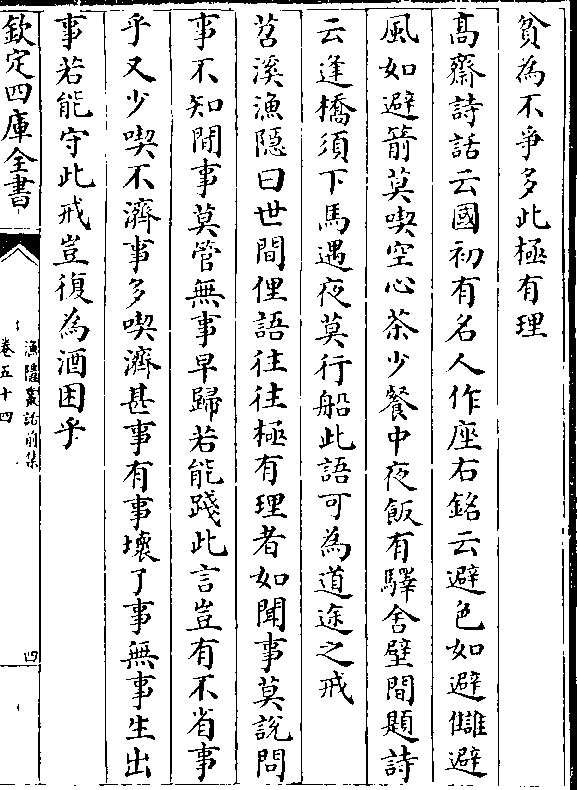 貧為不爭多此極有理
髙齋詩話云國初有名人作座右銘云避色如避讎避
風如避箭莫喫空心茶少餐中夜飯有驛舍壁間題詩
云逢橋須下馬遇夜莫行船此語可為道途之戒
苕溪漁隱曰世間俚語往往極有理者如聞事莫說問
事不知閒事莫管無事早歸若能踐此言豈有不省事
乎又少喫不濟事多喫濟甚事有事壞了事無事生出
事若能守此戒豈復為酒困乎
欽定四庫全書
漁隱叢話前集
卷五十四
四